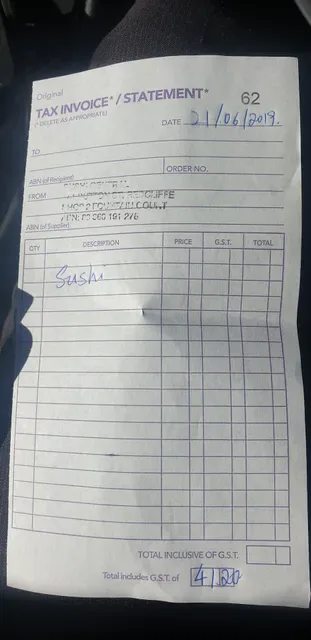 Original
TAX INVOICE* / STATEMENT*
62
(* DELETE AS APPROPRIATE)
DATE 21/06/2019.
TO
ORDER NO.
ABN (of Recipient)
FROM
ABN (of Supplier)
QTY DESCRIPTION PRICE G.S.T. TOTAL
Sushi
TOTAL INCLUSIVE OF G.S.T.
Total includes G.S.T. of 41.20